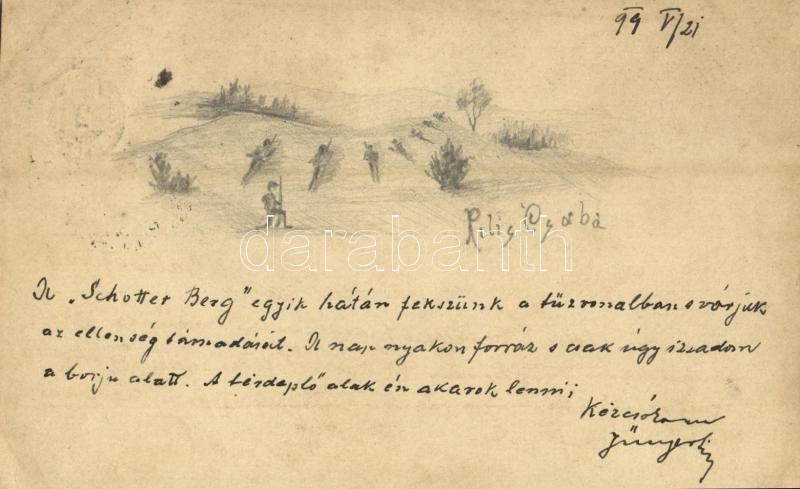 99 V/21
A „Schotter Berg" egyik hátán fekszünk a tűzvonalban s várjuk
az ellenség támadását. A nap nyakon forráz s csak úgy izzadom
a borju alatt. A térdeplő alak én akarok lenni;
Kézcsókom
darabanth.com